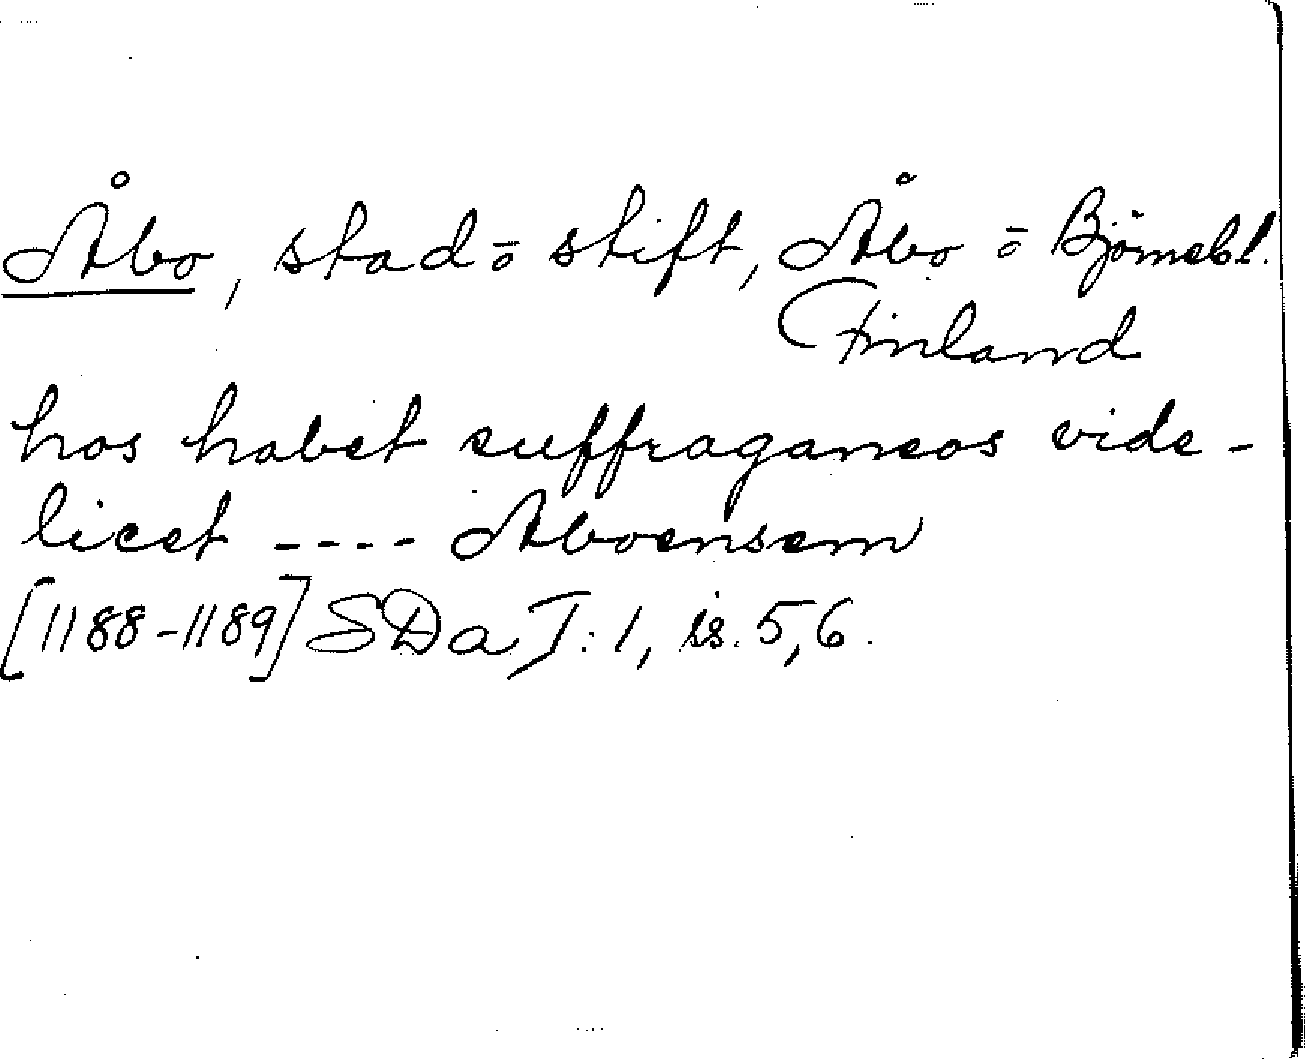 Åbo, stad o stift, Åbo o Björnebl.
Finland
hos habet suffraganeos vide-
licet ---- Aboensem
[1188-1189] SDa I:1, is. 5,6.